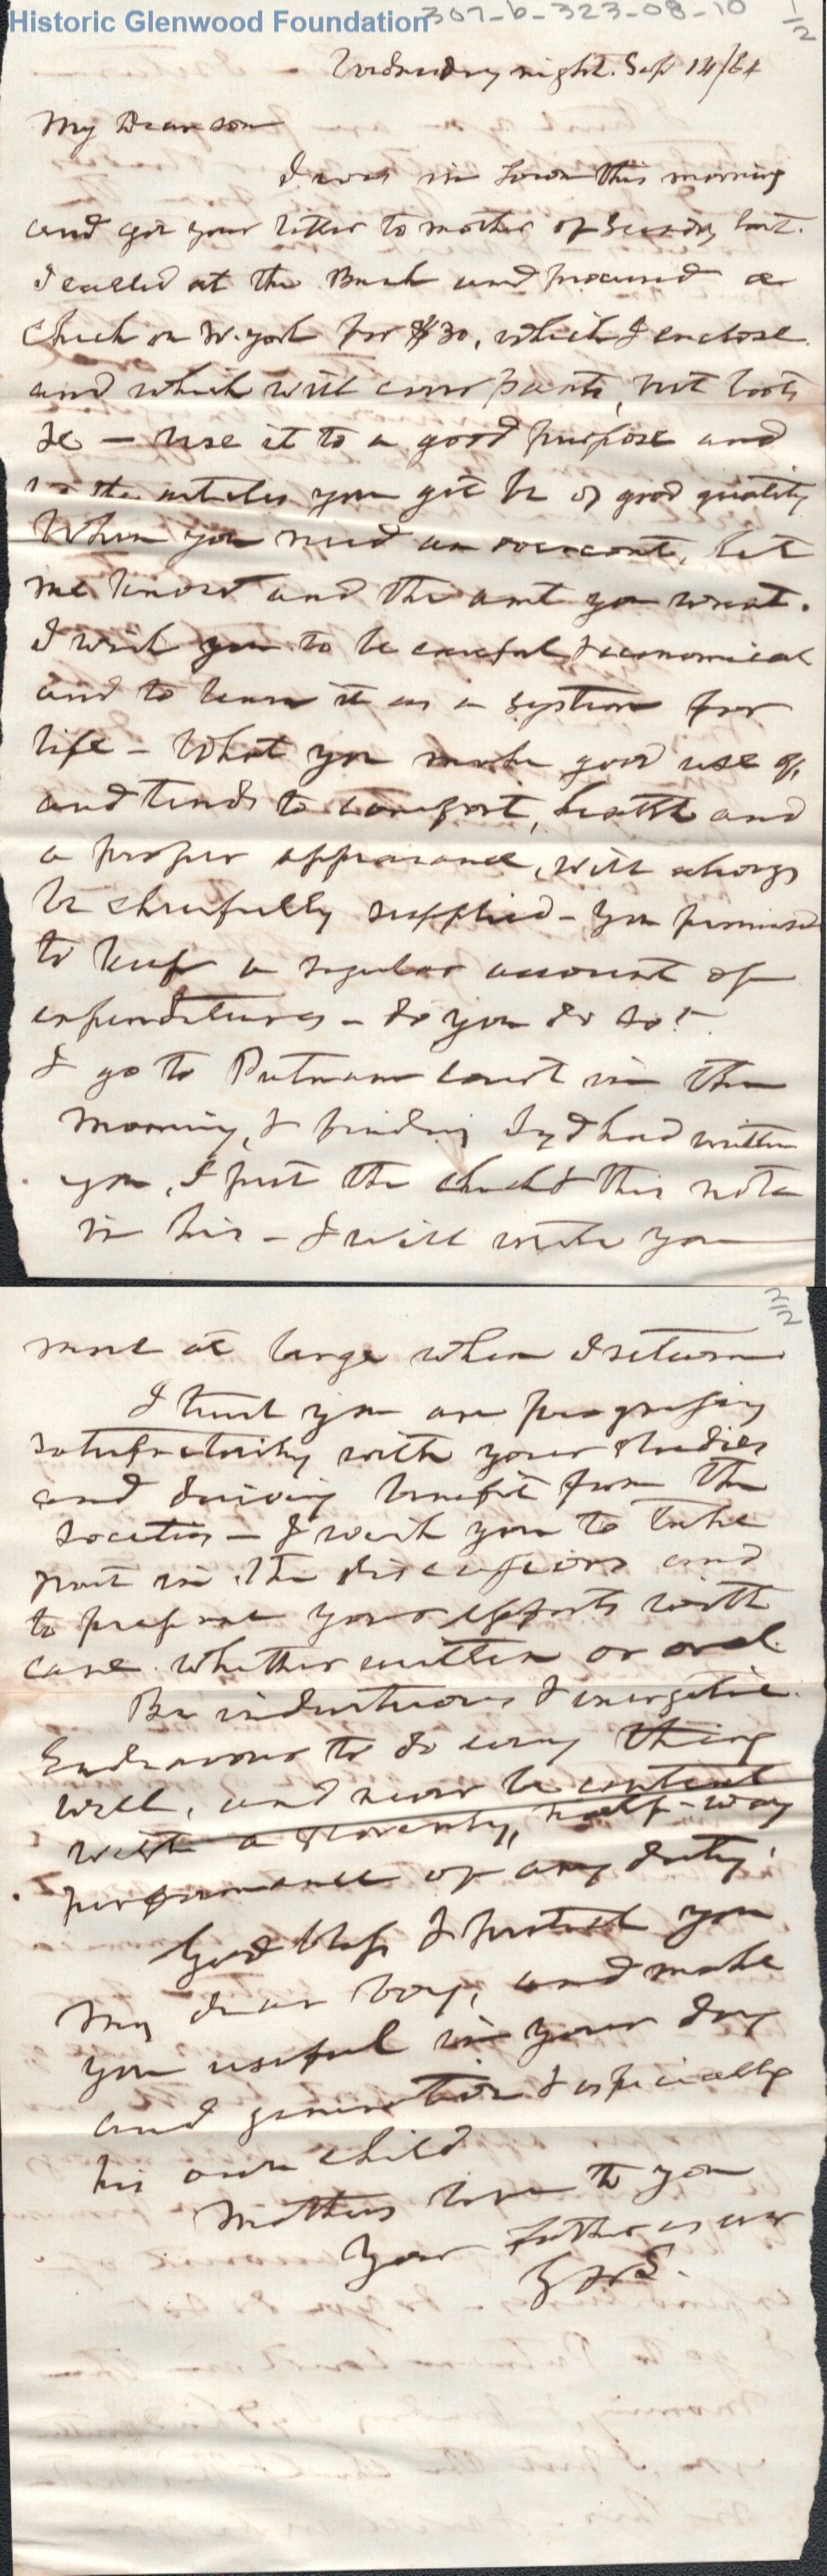 Historic Glenwood Foundation
307-b-323-08-10
1/2
Wednesday night. Sep 14/64
My Dear son
I was in town this morning
and got your letter to mother of Sunday last.
I called at the Bank and procured a
check on N. York for $30, which I enclose
and which will cover pants, vest boots
&c — Use it to a good purpose and
the articles you get be of good quality
When you need an overcoat, let
me know and the amt you want.
I wish you to be careful & economical
and to learn it as a system for
life – What you make good use of,
and tends to comfort, health and
a proper appearance, will always
be cheerfully supplied – You promised
to keep a regular account of
expenditures – do you do so?
I go to Putnam court in the
morning, & finding Syd had written
you, I put the check & this note
in his – I will write you
2/2
more at large when I return
I trust you are progressing
satisfactorily with your studies
and deriving benefit from the
societies — I wish you to take
part in the discussions and
to prepare your efforts with
care whether written or oral.
Be industrious & energetic.
Endeavour to do every thing
well, and never be content
with a slovenly, half-way
performance of any duty.
God bless & protect you
my dear boy, and make
you useful in your day
and generation & especially
his own child
Mothers love to you
Your father as ever
GWS.